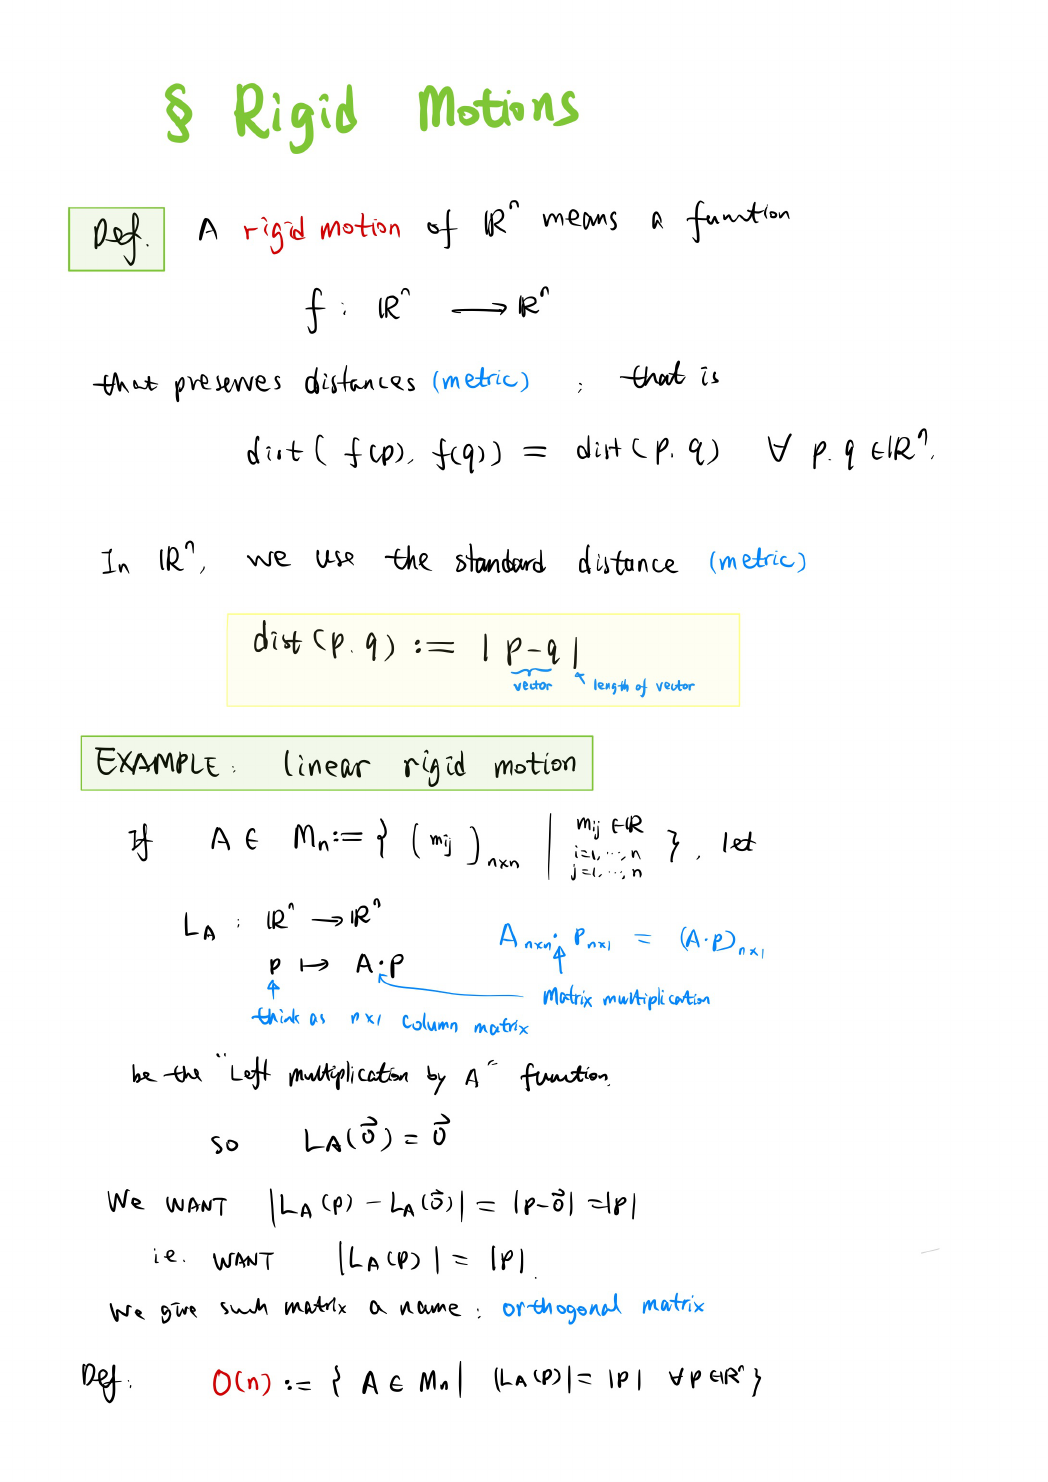 § Rigid Motions
Def. A rigid motion of ℝⁿ means a function
f : ℝⁿ ⟶ ℝⁿ
that preserves distances (metric) ; that is
dist ( f(p), f(q)) = dist (p, q) ∀ p, q ∈ ℝⁿ.
In ℝⁿ, we use the standard distance (metric)
dist (p, q) := | p - q |
vector ↖ length of vector
EXAMPLE: linear rigid motion
If A ∈ Mₙ := { (mᵢⱼ)ₙₓₙ | mᵢⱼ ∈ ℝ i=1, ..., n j=1, ..., n }, let
L_A : ℝⁿ ⟶ ℝⁿ
p ↦ A·p
Aₙₓₙ · pₙₓ₁ = (A·p)ₙₓ₁
Matrix multiplication
think as n×1 column matrix
be the "Left multiplication by A" function.
so L_A(0⃗) = 0⃗
We WANT |L_A(p) - L_A(0⃗)| = |p-0⃗| = |p|
i.e. WANT |L_A(p)| = |p|.
We give such matrix a name: orthogonal matrix
Def: O(n) := { A ∈ Mₙ | |L_A(p)| = |p| ∀ p ∈ ℝⁿ }